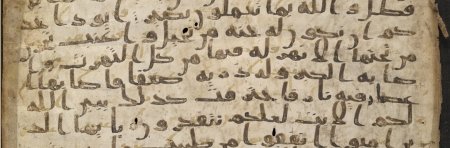 فطل والله بما تعملون بصير ايود احد
كم ان تكون له جنة من نخيل واعنب تجري
من تحتها الانهر له فيها من كل الثمرت وا
صابه الكبر وله ذرية ضعفا فاصابها ا
عصار فيه نار فاحترقت كذلك يبين الله
لكم الايت لعلكم تتفكرون يايها الذ
ين امنوا انفقوا من طيبت